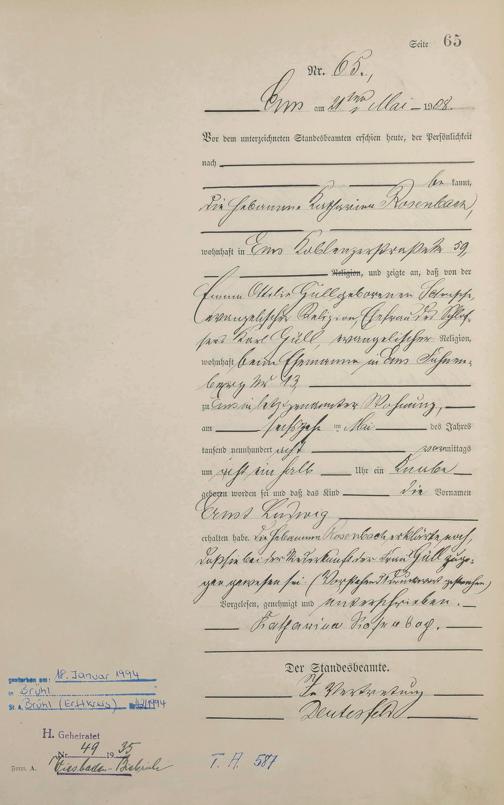 Seite 65
Nr. 65.,
Ems am 21ten Mai 1908.
Vor dem unterzeichneten Standesbeamten erschien heute, der Persönlichkeit
nach
be kannt,
die Hebamme Katharina Rosenbach,
wohnhaft in Ems Koblenzerstraße 59,
Religion, und zeigte an, daß von der
Emma Ottilie Güll geborenen
evangelischer Religion Ehefrau des Schlos-
sers Karl Güll, evangelischer Religion,
wohnhaft beim Ehemanne in Ems
berg Nr 13
zu Ems in letztgenannter Wohnung,
am sechszehn im Mai des Jahres
tausend neunhundert acht vormittags
um acht ein halb Uhr ein Knabe
geboren worden sei und daß das Kind die Vornamen
Ernst Ludwig
erhalten habe. Die Hebamme Rosenbach erklärte noch,
daß sie bei der Niederkunft der Frau Güll zuge-
gen gewesen sei (Vorstehend Druckwort gestrichen)
Vorgelesen, genehmigt und unterschrieben.
Katharina Rosenbach.
Der Standesbeamte.
In Vertretung
gestorben am: 18. Januar 1994
in Brühl
St A. Brühl (Erftkreis) Nr.
H. Geheiratet
Nr. 49 1935
Wiesbaden-Biebrich
Form. A.
T. A. 587